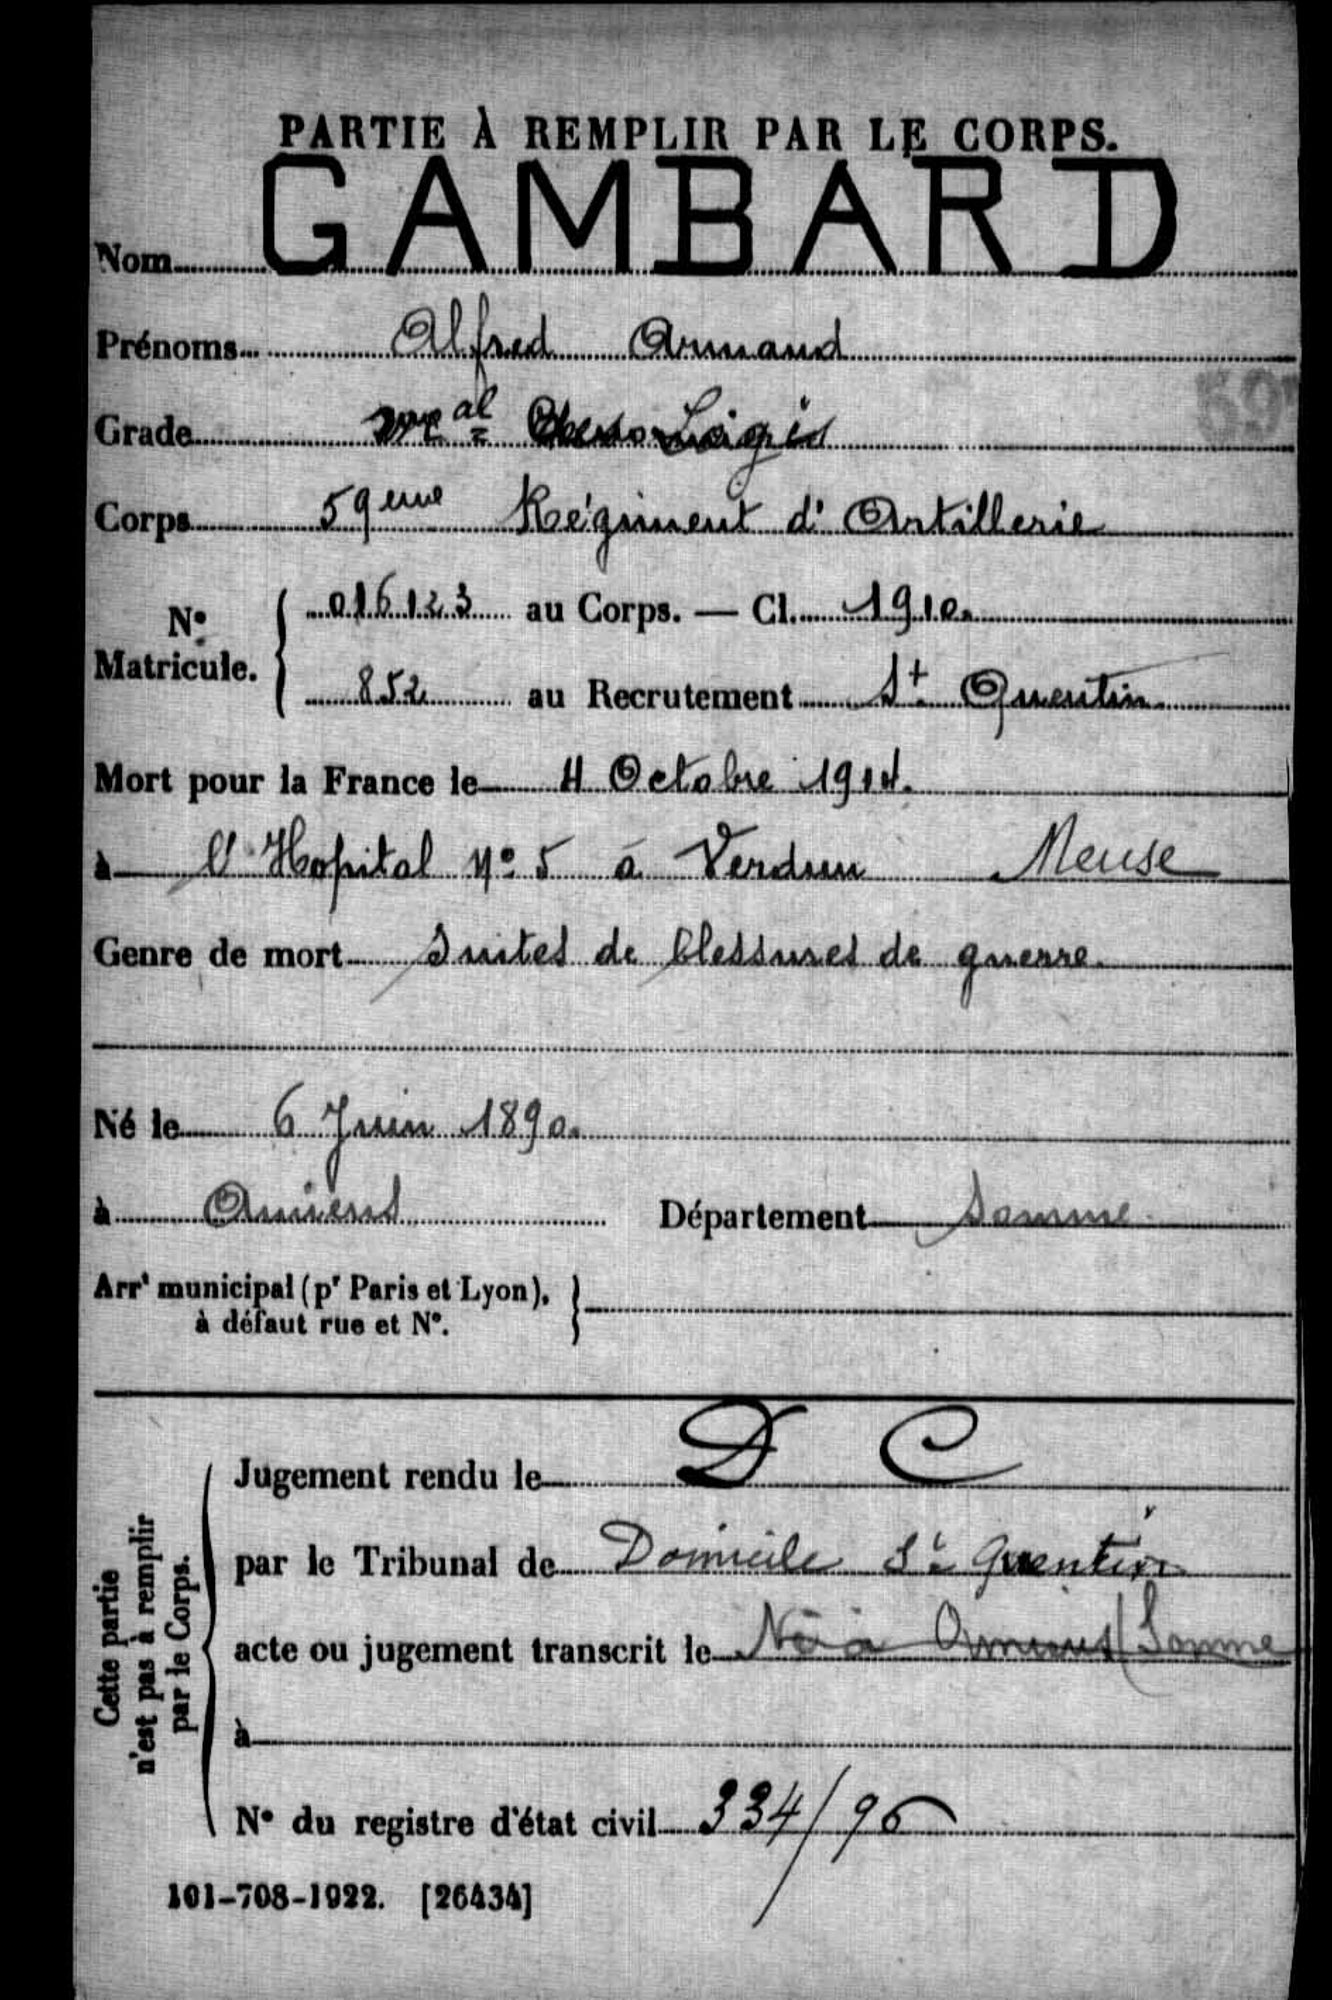 PARTIE À REMPLIR PAR LE CORPS.
Nom GAMBARD
Prénoms Alfred Armand
59
Grade Mal des Logis
Corps 59eme Régiment d'Artillerie
No Matricule. { 016123 au Corps. — Cl. 1910.
852 au Recrutement St Quentin
Mort pour la France le 4 Octobre 1914.
à l'Hopital No 5 à Verdun Meuse
Genre de mort Suites de blessures de guerre.
Né le 6 Juin 1890.
à Amiens Département Somme
Arrt municipal (pr Paris et Lyon), }
à défaut rue et No.
Cette partie
n'est pas à remplir
par le Corps.
Jugement rendu le D C
par le Tribunal de Domicile St Quentin
acte ou jugement transcrit le Né à Amiens (Somme
à
No du registre d'état civil 334/96
101-708-1922. [26434]